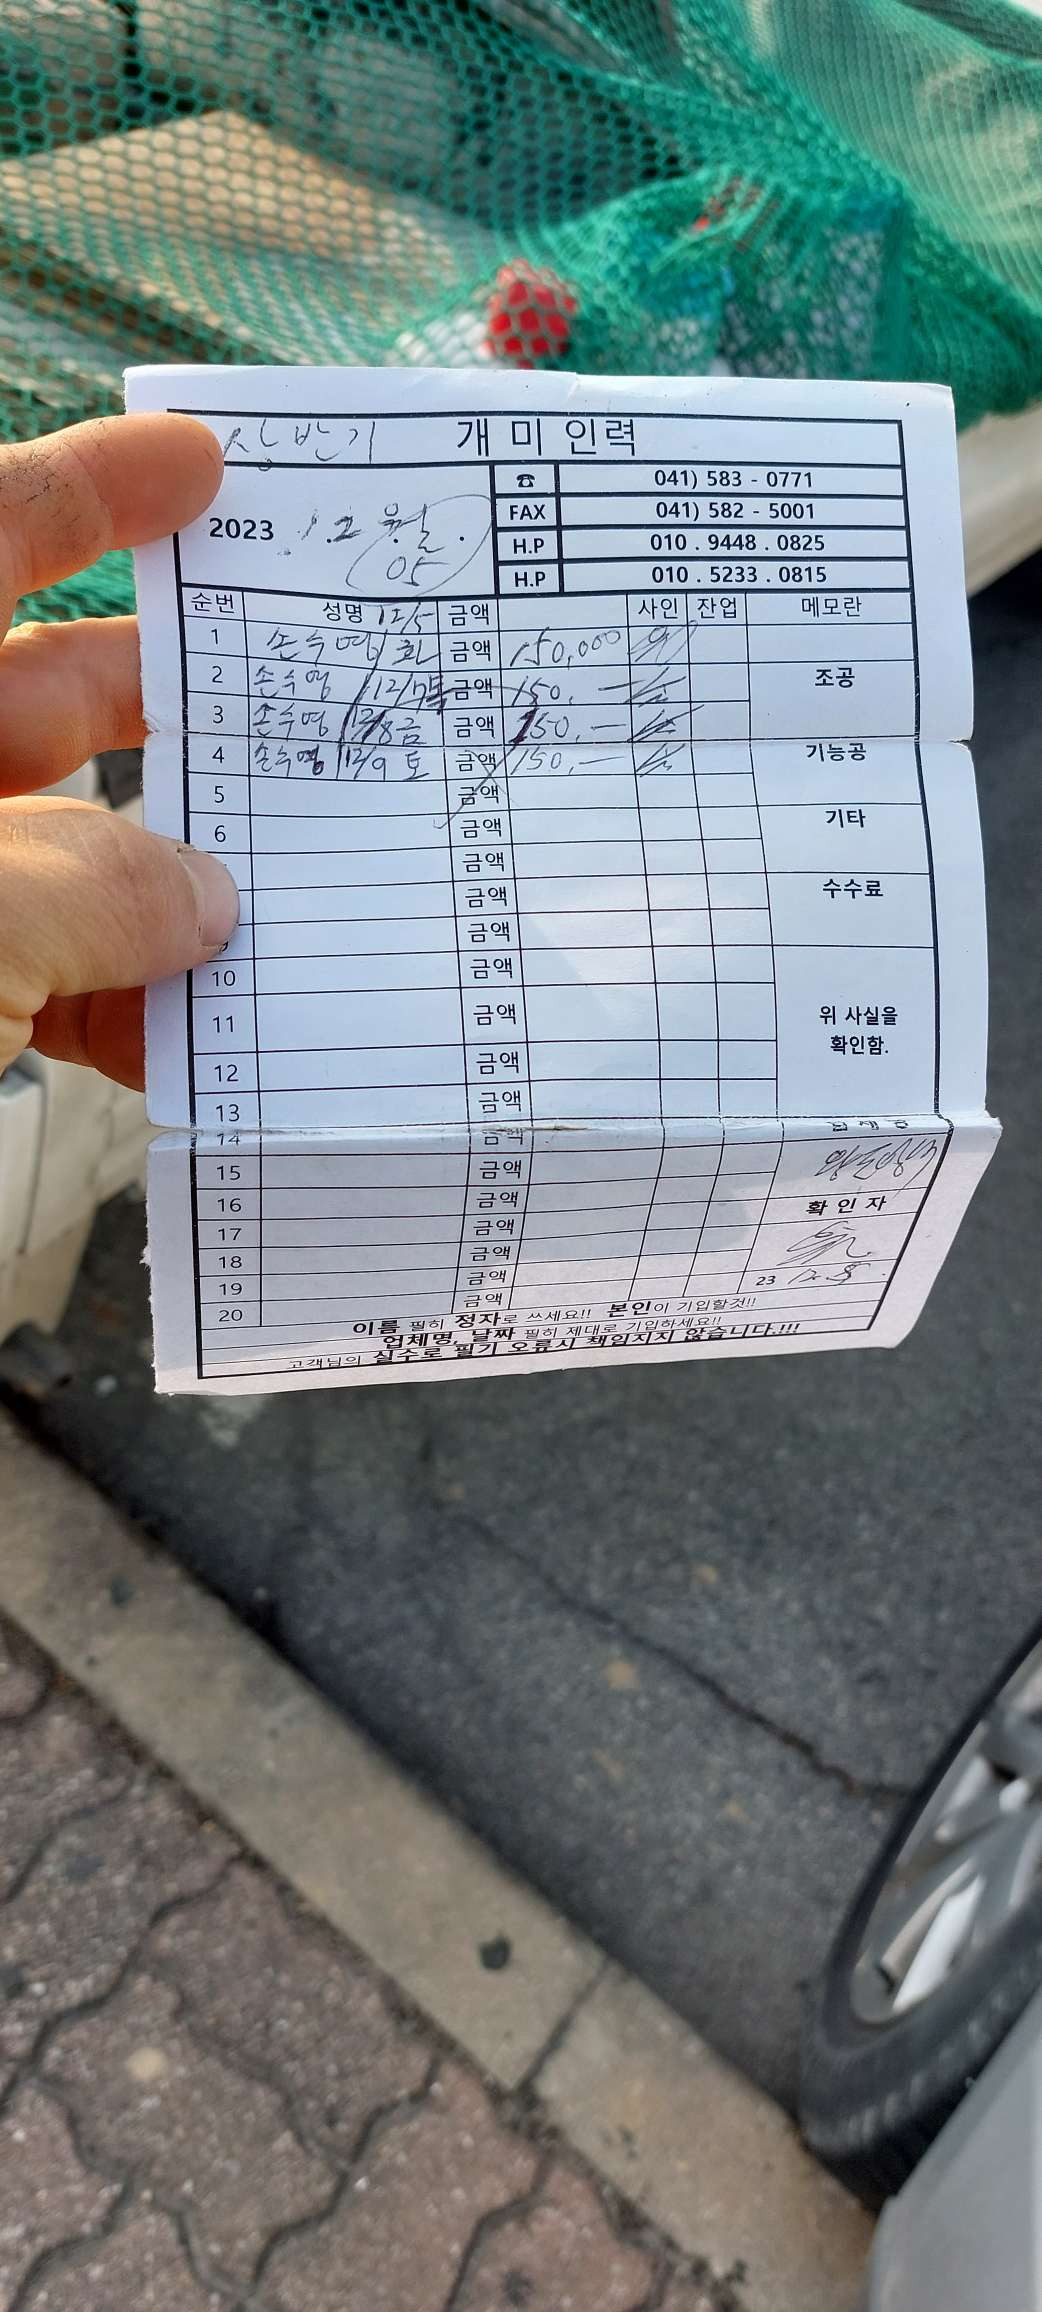 상반기 개미인력
☎ 041) 583 - 0771
2023 . 12 월 .
FAX 041) 582 - 5001
05
H.P 010 . 9448 . 0825
H.P 010 . 5233 . 0815
순번 성명 12/5 금액 사인 잔업 메모란
1 손수영 화 금액 150,000
2 손수영 12/7목 금액 150,― 조공
3 손수영 12/8금 금액 150,―
4 손수영 12/9 토 금액 150,― 기능공
5 금액
6 금액 기타
금액
금액 수수료
9 금액
10 금액
11 금액 위 사실을
확인함.
12 금액
13 금액
14 금액
15 금액
16 금액 확 인 자
17 금액
18 금액
19 금액 23 12.
20 금액
이름 필히 정자로 쓰세요!! 본인이 기입할것!!
업체명, 날짜 필히 제대로 기입하세요!!
고객님의 실수로 필기 오류시 책임지지 않습니다.!!!